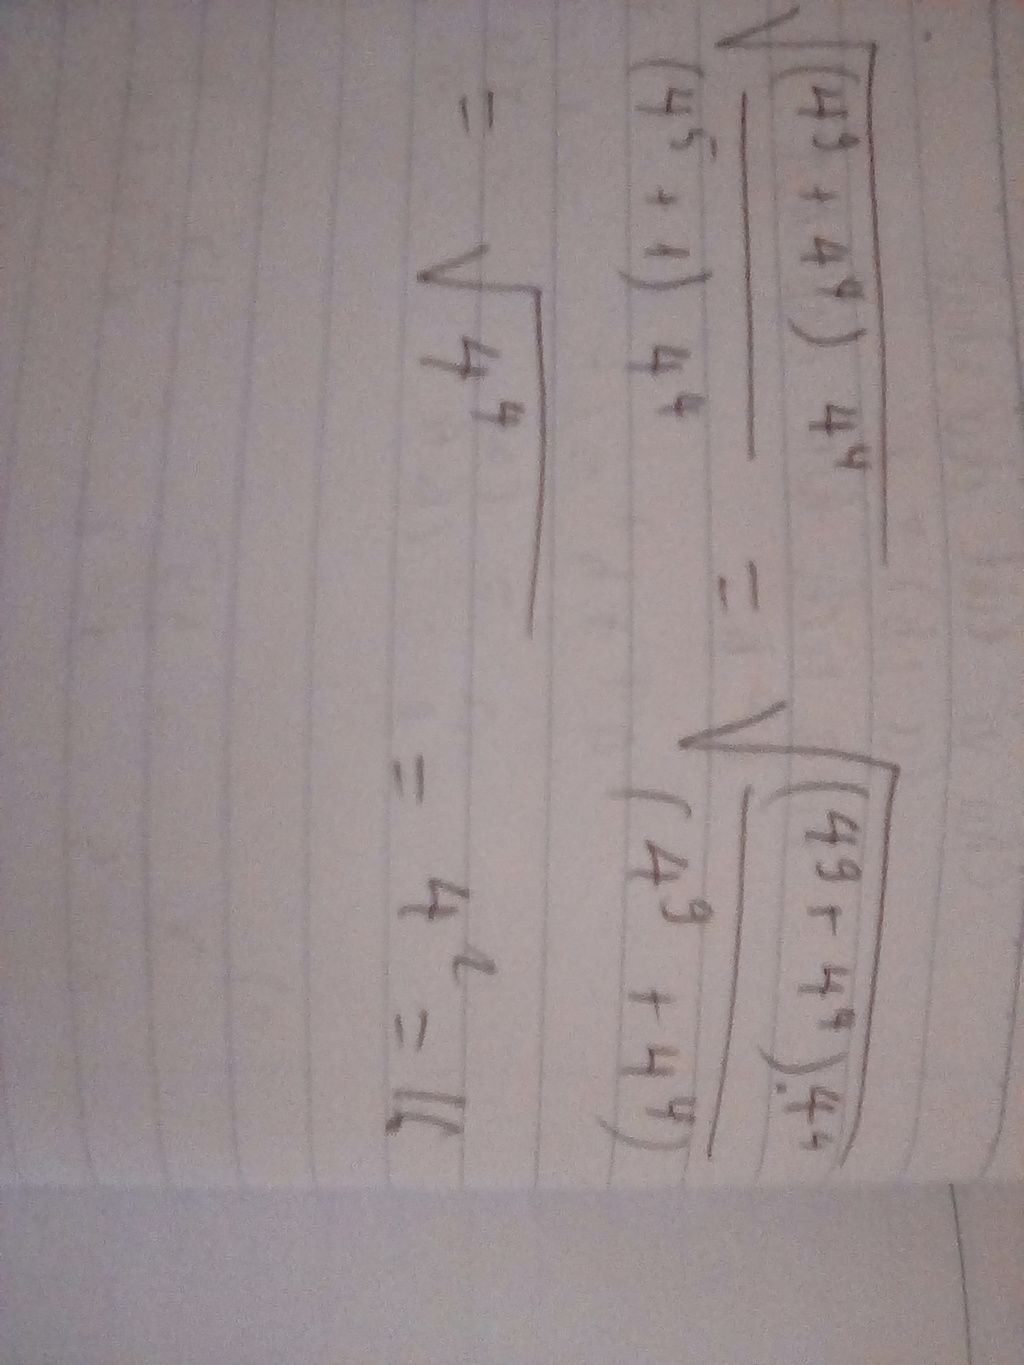 √((4⁹ + 4⁴) 4⁴ / (4⁵ + 1) 4⁴) = √((4⁹ + 4⁴) . 4⁴ / (4⁹ + 4⁴))
= √4⁴ = 4² = 16